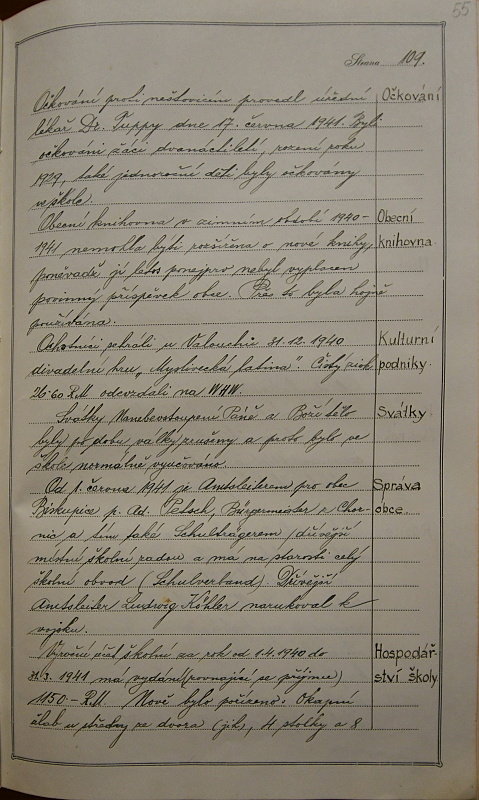 55
Strana 109.
Očkování proti neštovicím provedl úřední Očkování
lékař Dr. Tuppy dne 17. června 1941. Byli
očkováni žáci dvanáctiletí, rození roku
1929, také jednoroční děti byly očkovány
ve škole.
Obecní knihovna v zimním období 1940- Obecní
1941 nemohla býti rozšířena o nové knihy, knihovna
poněvadž jí letos ponejprv nebyl vyplacen
povinný příspěvek obce. Přes to byla hojně
používána.
Ochotníci sehráli u Valouchů 31.12.1940 Kulturní
divadelní hru „Myslivecká latina". Čistý zisk podniky.
26·60 R.M odevzdali na W.H.W.
Svátky Nanebevstoupení Páně a Boží tělo Svátky
byly po dobu války zrušeny a proto bylo ve
škole normálně vyučováno.
Od 1. června 1941 je Amtsleiterem pro obec Správa
Biskupice p. Ad. Petsch, Bürgermeister z Chor- obce
nic a tím také Schulträgerem (dřívější
místní školní radou) a má na starosti celý
školní obvod (Schulverband). Dřívější
Amtsleiter Ludwig Köhler narukoval k
vojsku.
Výroční účet školní za rok od 1.4.1940 do Hospodář-
31.3. 1941 má vydání (rovnající se příjmu) ství školy
1150·- R.M. Nově bylo pořízeno: Okapní
žlab u střechy ze dvora (jih), 4 stolky a 8